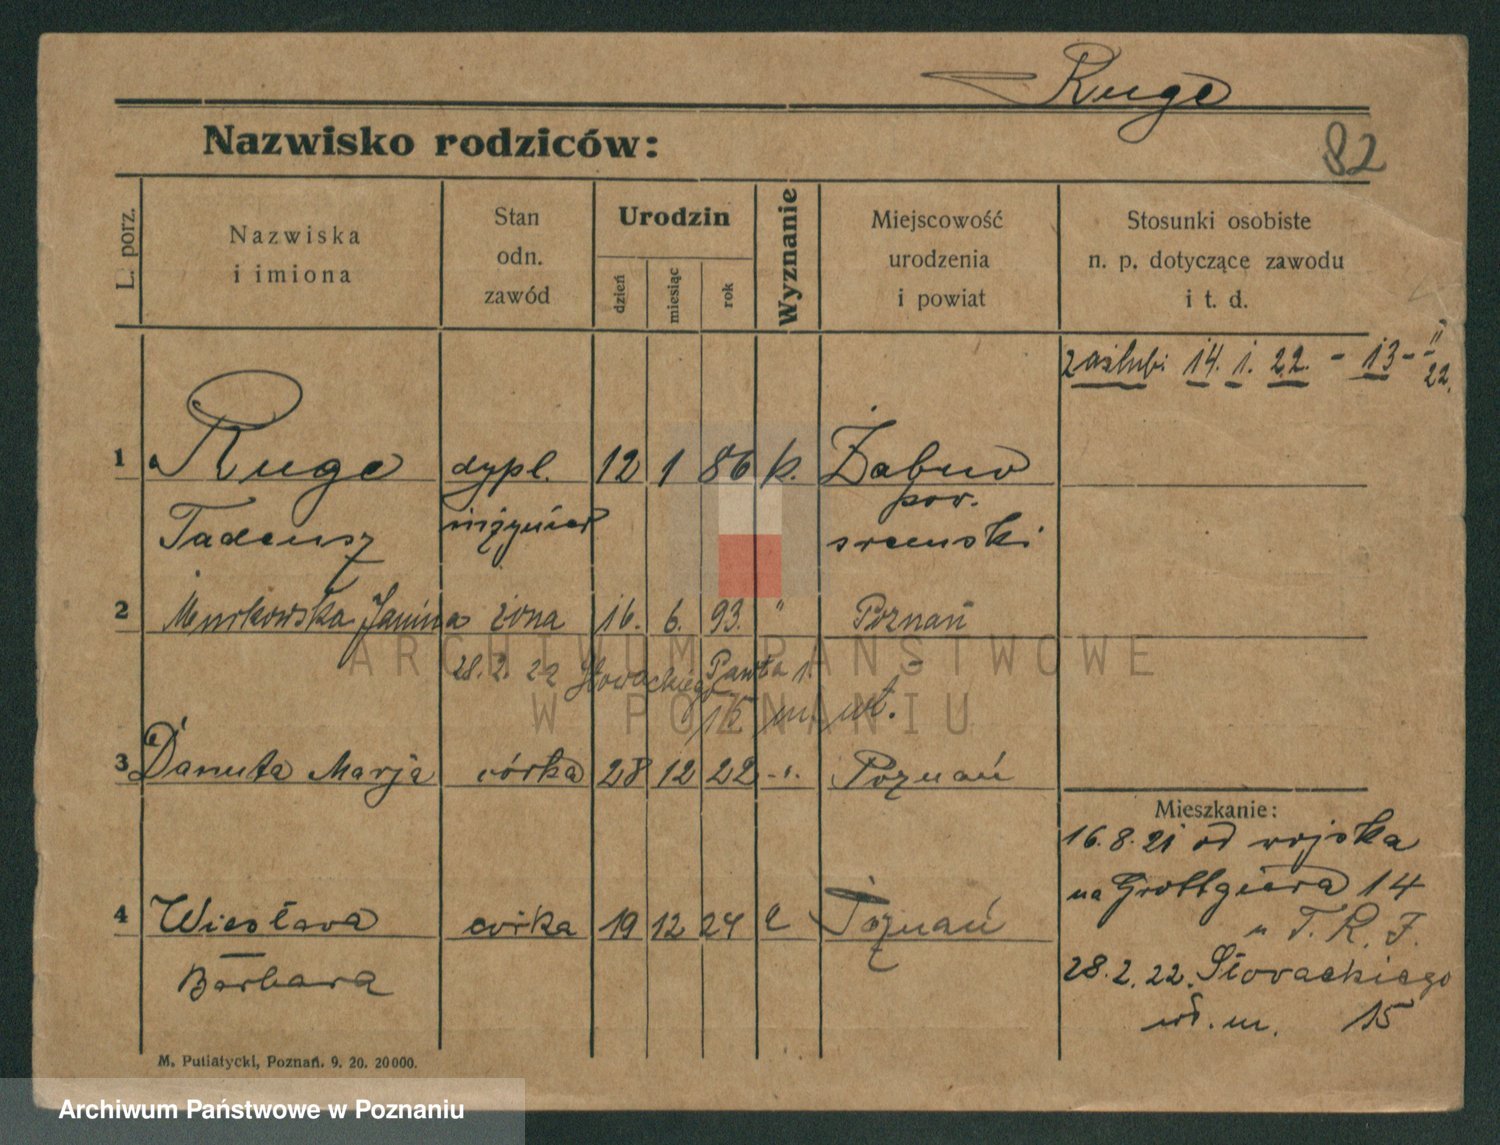 Ruge
82
Nazwisko rodziców:
L. porz.
Nazwiska
i imiona
Stan
odn.
zawód
Urodzin
dzień
miesiąc
rok
Wyznanie
Miejscowość
urodzenia
i powiat
Stosunki osobiste
n. p. dotyczące zawodu
i t. d.
zaślubi 14. 1. 22. - 13 - II
22.
1 Ruge dypl. 12 1 86 k. Żabno
Tadeusz inżynier pow.
sremski
2 Murkowska Janina żona 16. 6. 93. " Poznań
28. 2. 22 Słowackiego Pawła 1. -
15 m. wł.
3 Danuta Marja córka 28 12 22 -"- Poznań
Mieszkanie:
16. 8. 21 od wojska
na Grottgiera 14
u T. R. J.
4 Wiesława córka 19 12 24 Poznań
Barbara
28. 2. 22. Słovackiego
wł. m. 15
M. Putiatycki, Poznań. 9. 20. 20000.
ARCHIWUM PAŃSTWOWE
W POZNANIU
Archiwum Państwowe w Poznaniu